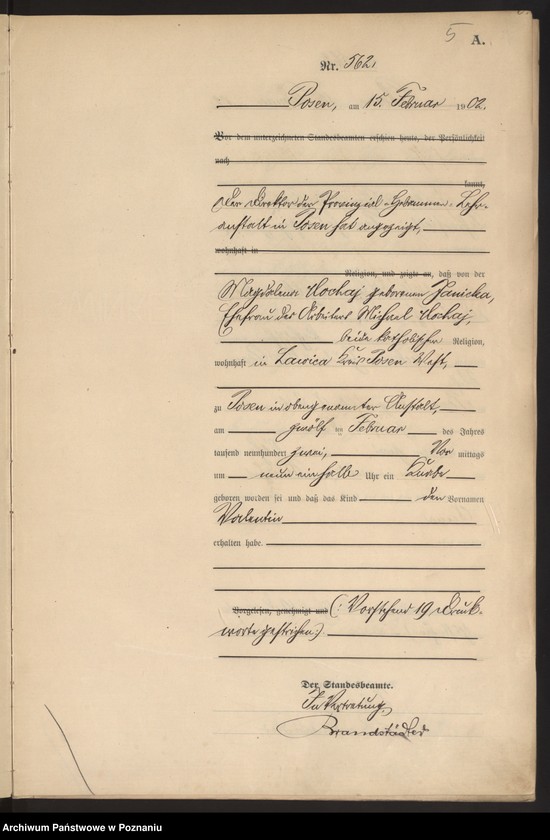 5 A.
Nr. 562.
Posen, am 15. Februar 1902.
Vor dem unterzeichneten Standesbeamten erschien heute, der Persönlichkeit
nach
kannt,
Der Direktor der Provinzial-Hebammen-Lehr-
anstalt in Posen hat angezeigt,
wohnhaft in
Religion, und zeigte an, daß von der
Magdalena Kochaj geborenen Janicka,
Ehefrau des Arbeiters Michael Kochaj,
beide katholischer Religion,
wohnhaft in Lawica Kreis Posen West,
zu Posen in obengenannter Anstalt,
am zwölf ten Februar des Jahres
tausend neunhundert zwei, Vor mittags
um neun einhalb Uhr ein Knabe
geboren worden sei und daß das Kind den Vornamen
Valentin
erhalten habe.
Vorgelesen, genehmigt und (: Vorstehend 19 Druck-
worte gestrichen:)
Der Standesbeamte.
In Vertretung
Brandstädter
Archiwum Państwowe w Poznaniu